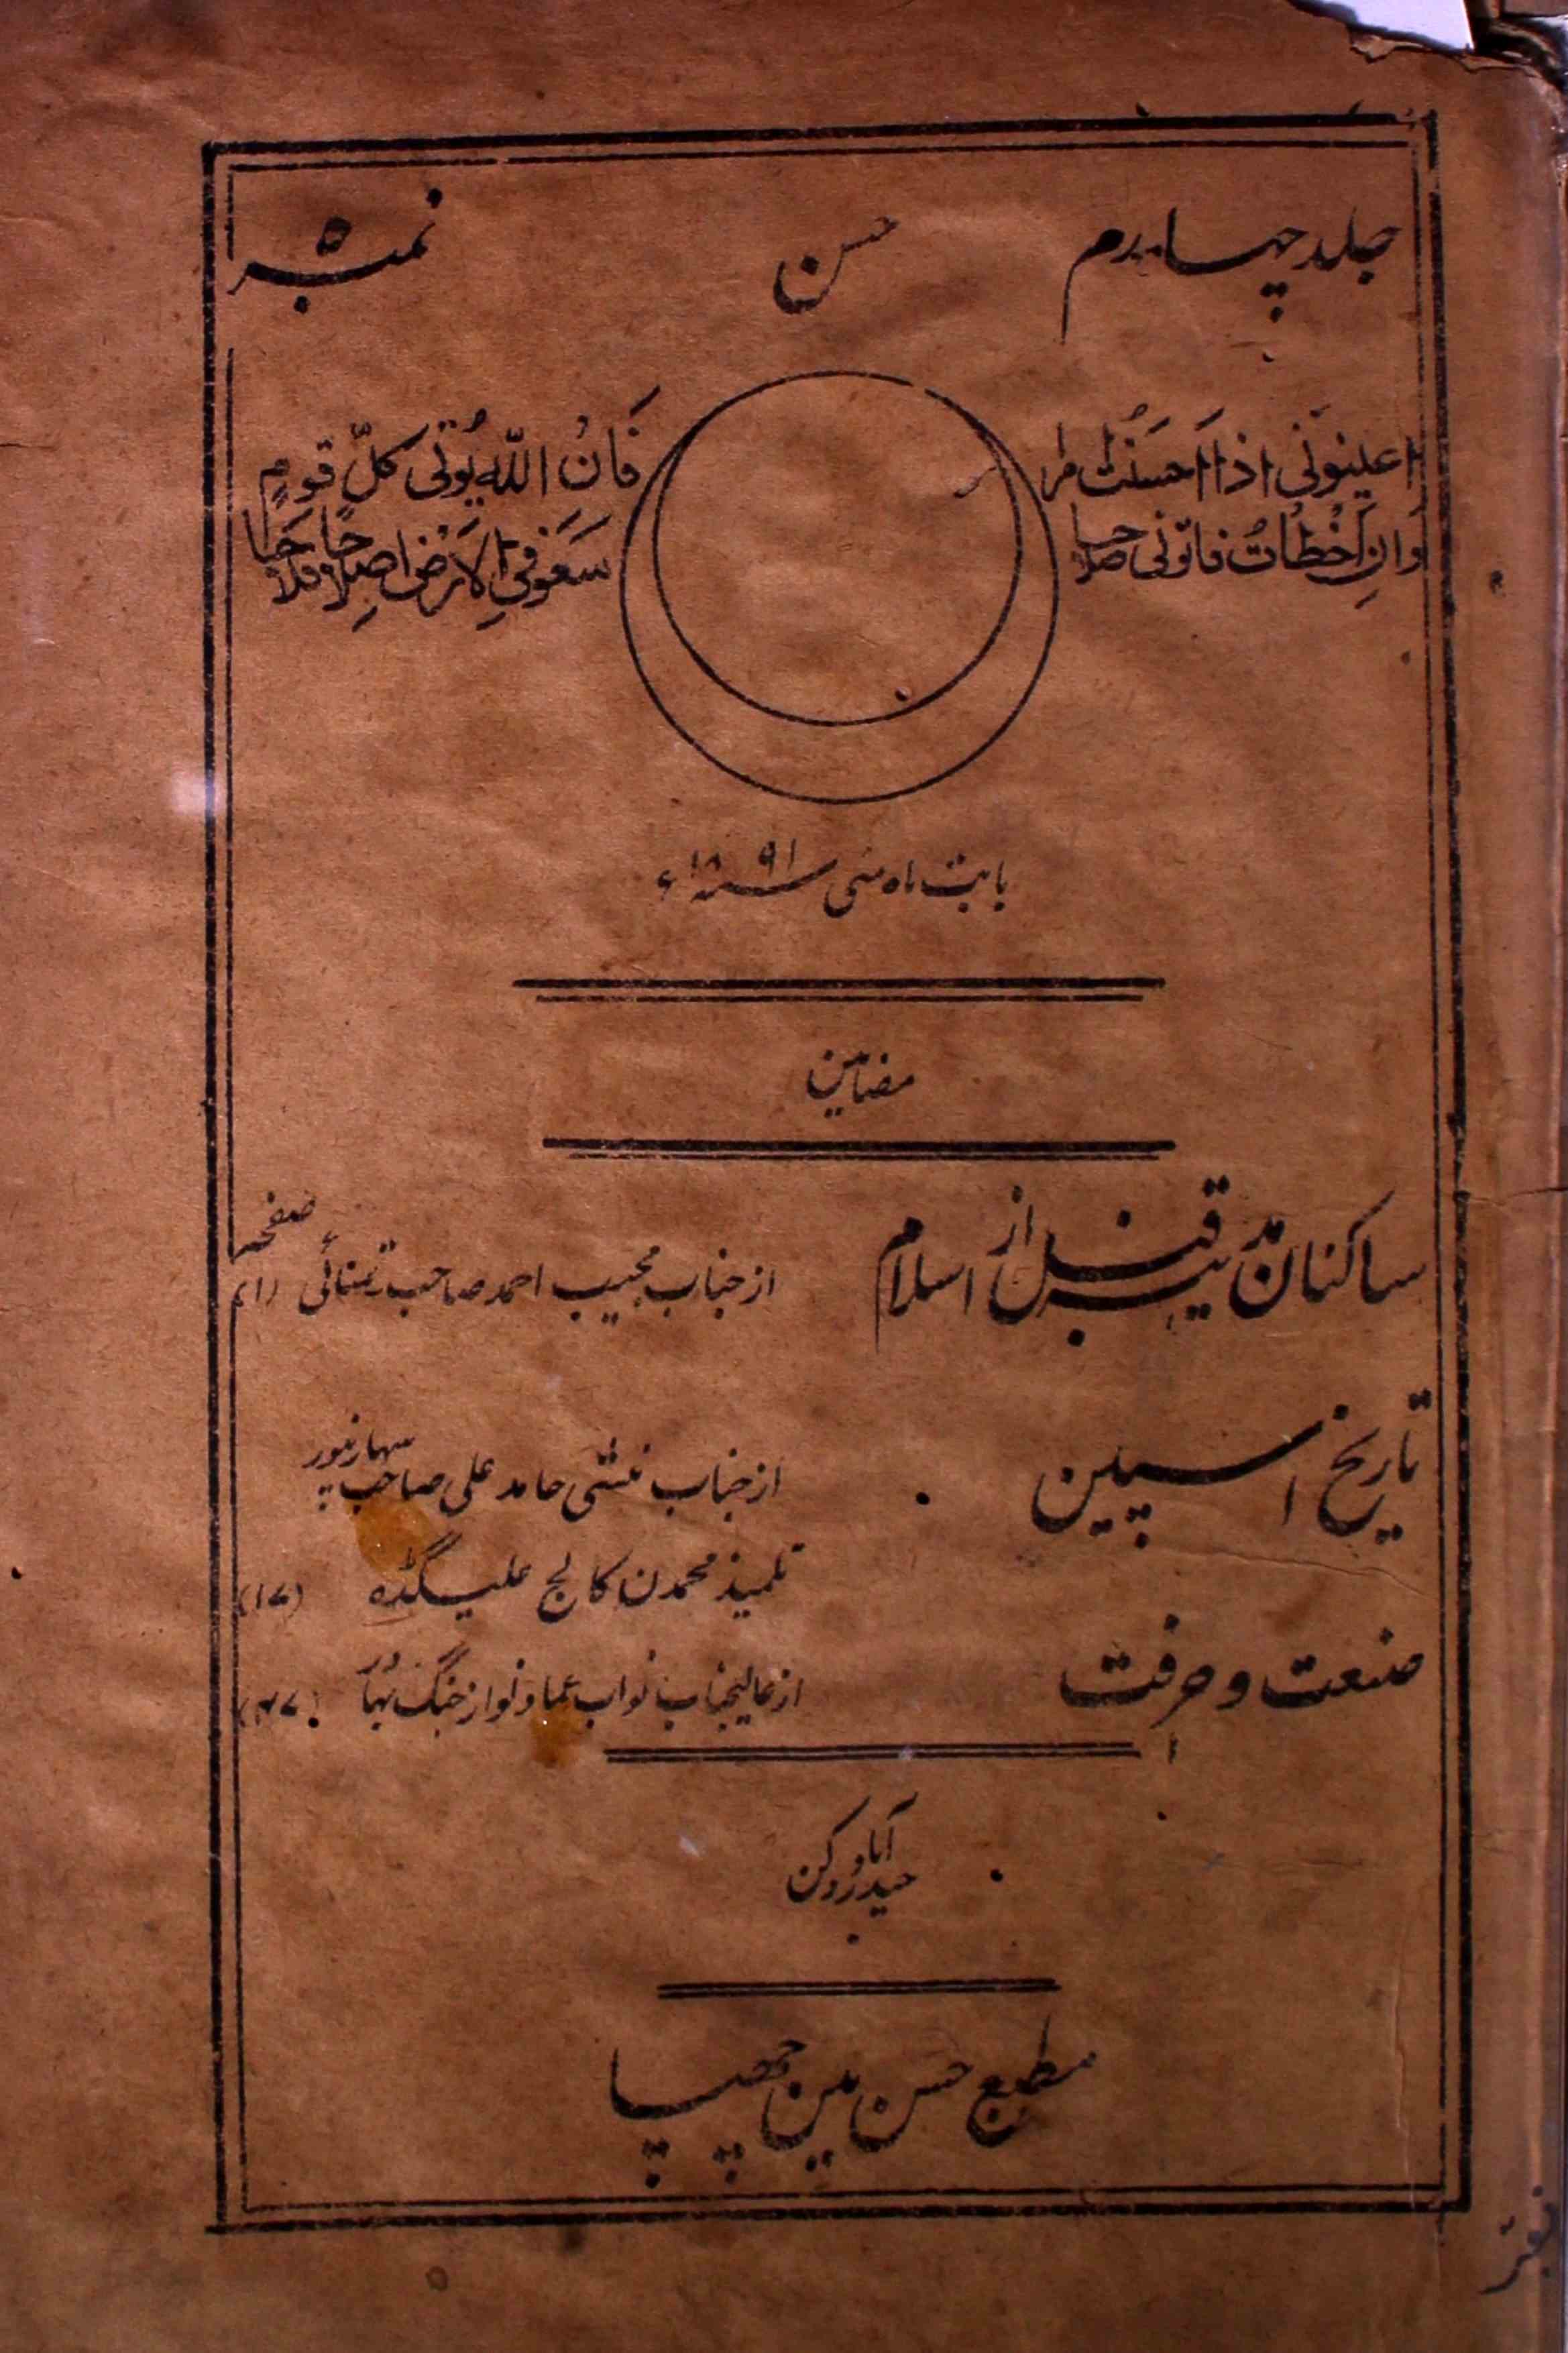 جلد چہارم حسن نمبر ۵
اعینونی اذا احسنت امرا
وان اخطات فاتونی صلاحا
فان اللہ یوتی کل قوم
سعوفی الارض اصلاحا فلاحا
بابت ماہ مئی سنہ ۱۸۹۱ء
مضامین
صفحہ
ساکنان مدینہ قبل از اسلام از جناب مجیب احمد صاحب تمنائی (۱)
تاریخ اسپین از جناب منشی حامد علی صاحب سہارنپور
تلمیذ محمدن کالج علیگڈہ (۱۷)
صنعت و حرفت از عالیجناب نواب عماد نواز جنگ بہادر
حیدرآباد دکن
مطبع حسن مین چھپا